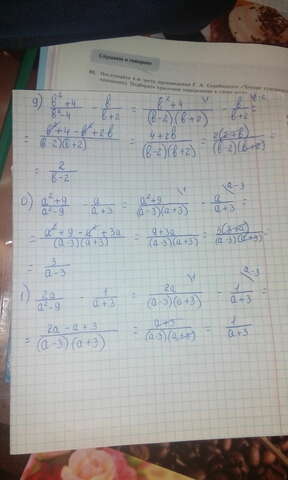 Слушаем и говорим
g) (b²+4)/(b²-4) - b/(b+2) = (b²+4)/((b-2)(b+2)) \1 - b/(b+2) \b-2 =
= (b²+4-b²+2b)/((b-2)(b+2)) = (4+2b)/((b-2)(b+2)) = (2(2+b))/((b-2)(b+2)) =
= 2/(b-2)
(a²+9)/(a²-9) - a/(a+3) = (a²+9)/((a-3)(a+3)) \1 - a/(a+3) \a-3 =
= (a²+9-a²+3a)/((a-3)(a+3)) = (9+3a)/((a-3)(a+3)) = (3(3+a))/((a-3)(a+3)) =
= 3/(a-3)
2a/(a²-9) - 1/(a+3) = 2a/((a-3)(a+3)) \1 - 1/(a+3) \a-3 =
= (2a-a+3)/((a-3)(a+3)) = (a+3)/((a-3)(a+3)) = 1/(a+3)